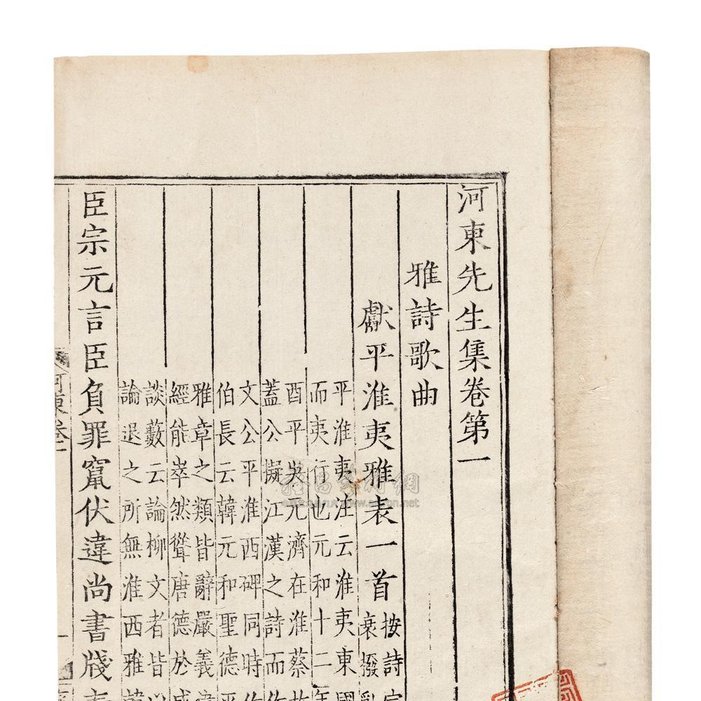 河東先生集卷第一
雅詩歌曲
獻平淮夷雅表一首
按詩
衰撥亂
平淮夷注云淮夷東國
而夷行也元和十二年
酉平吳元濟在淮蔡故
蓋公擬江漢之詩而作
文公平淮西碑同時作
伯長云韓元和聖德平
雅章之類皆辭嚴義
經能崒然聳唐德於盛
談藪云論柳文者皆以
論退之所無淮西雅韓
臣宗元言臣負罪竄伏違尚書牋
河東卷一